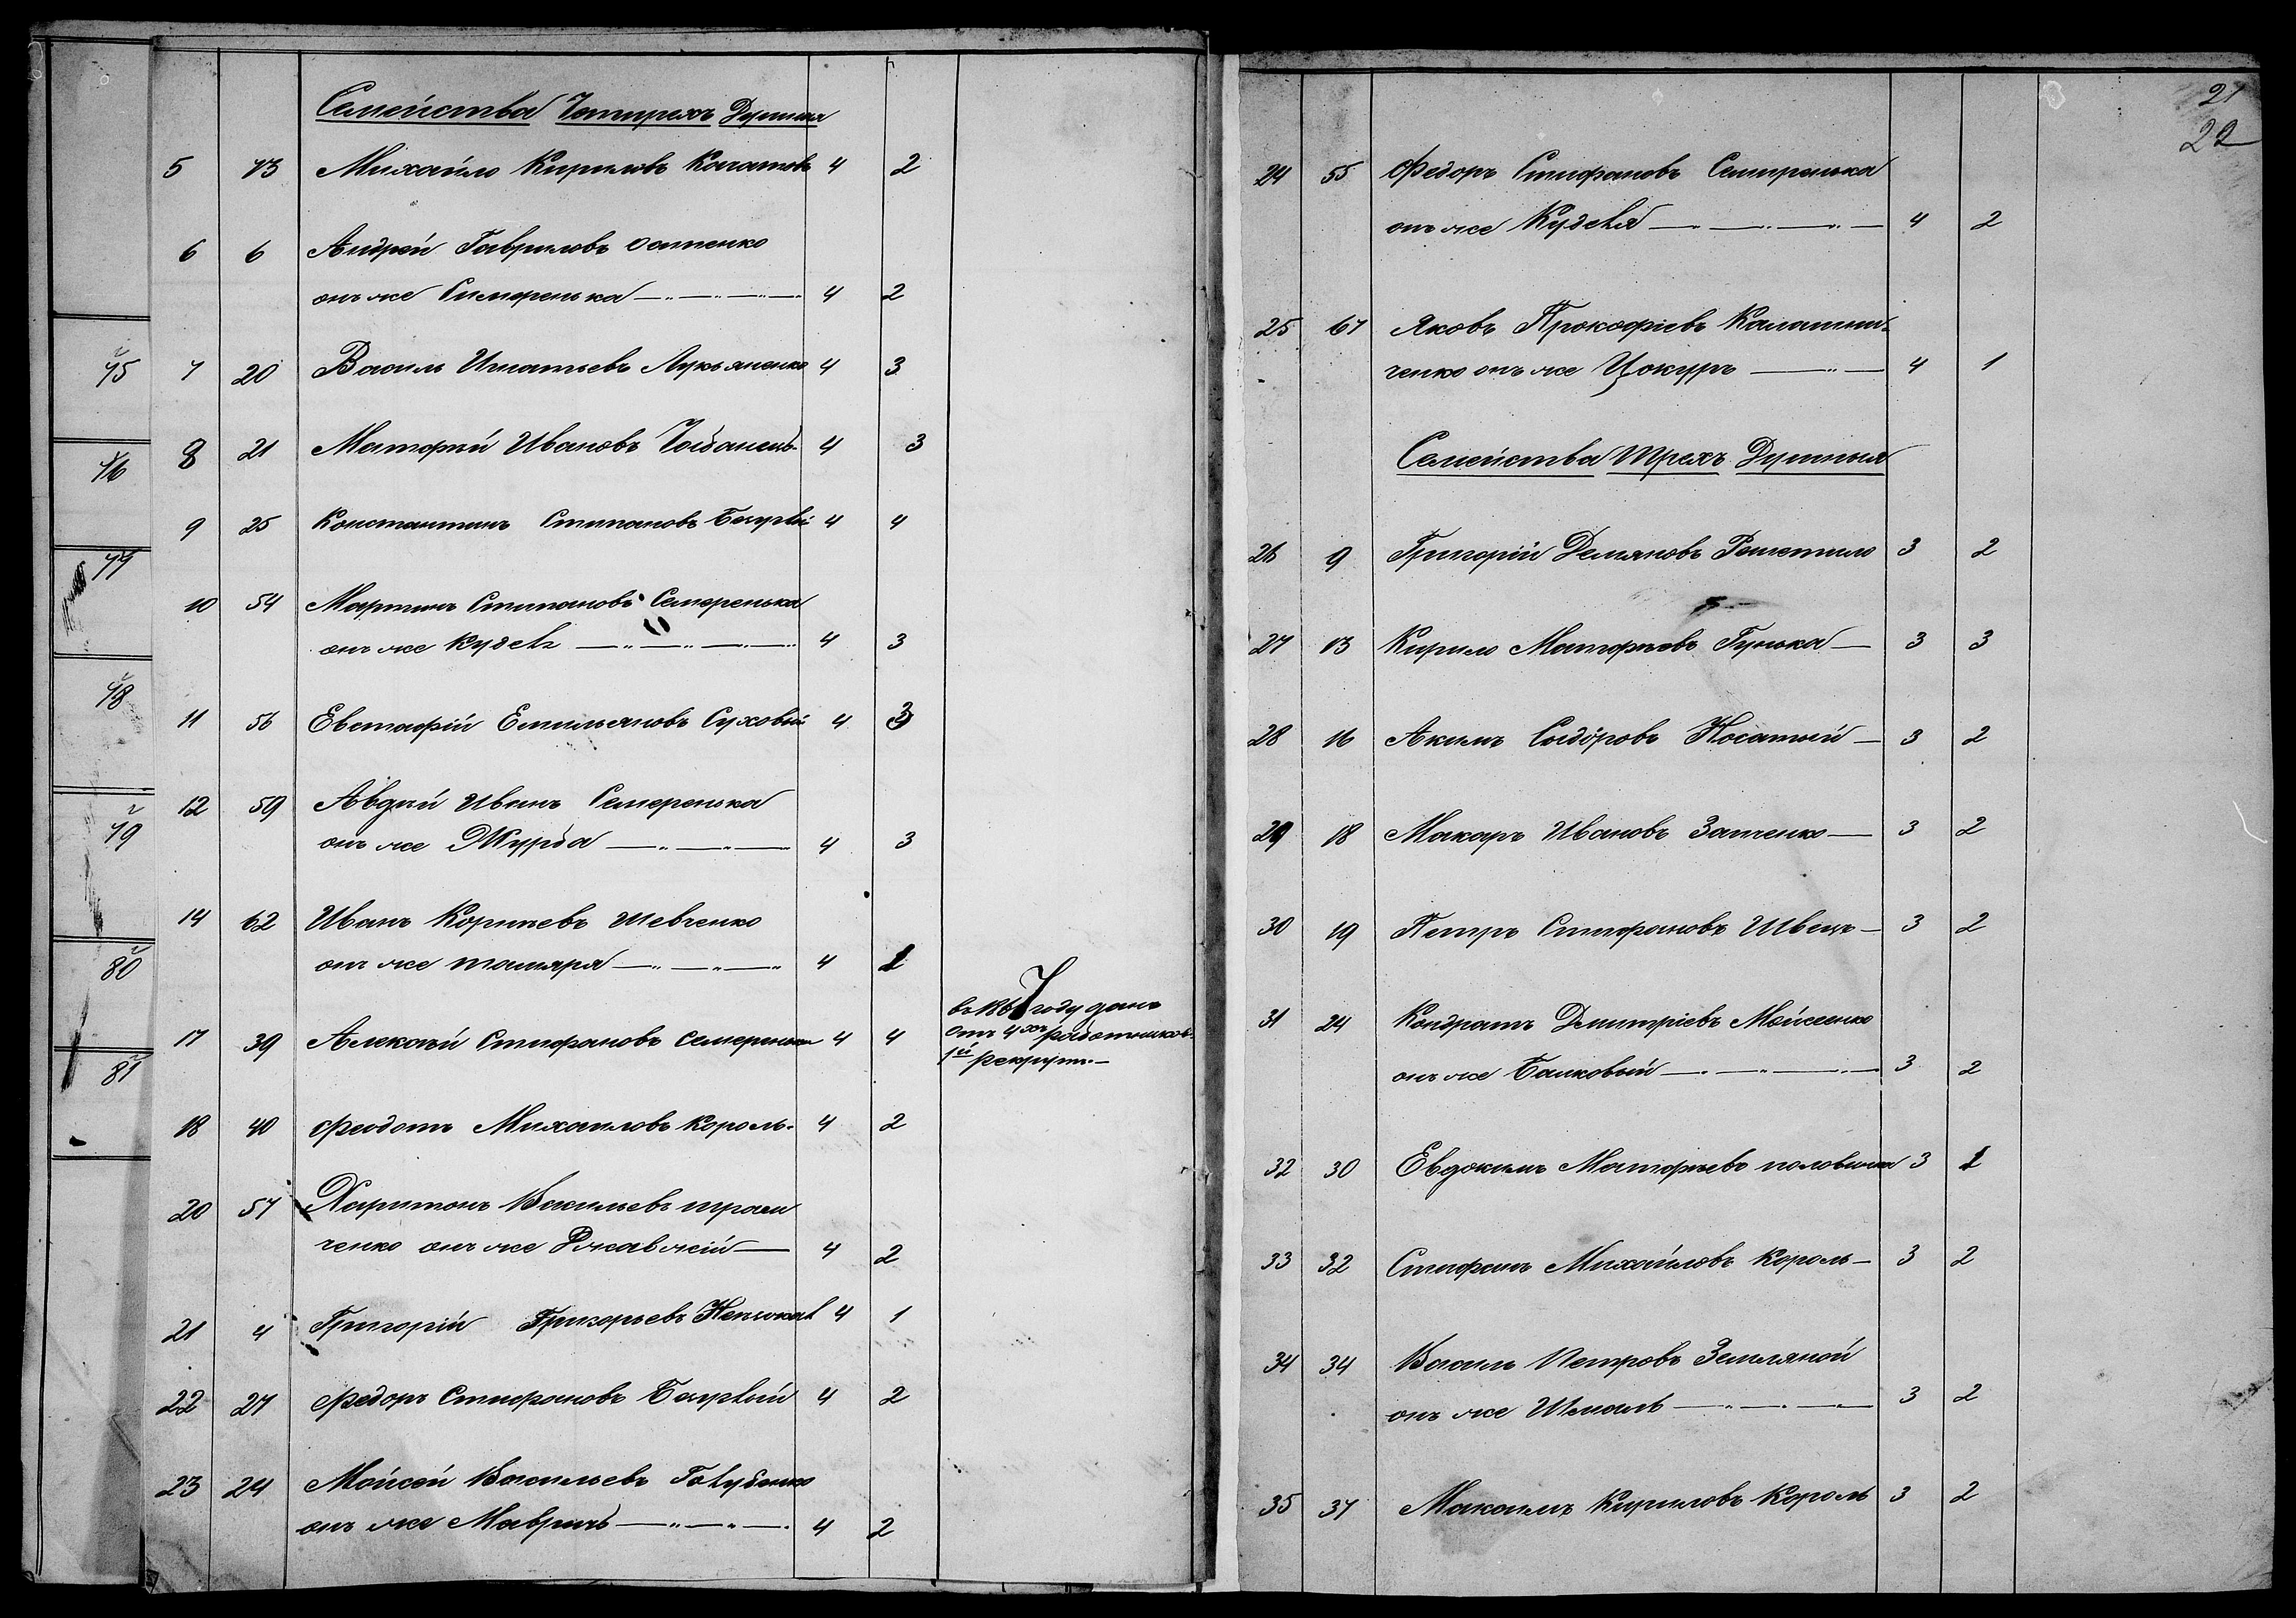 Семейства Четырехъ Душныя
5 13 Михайло Кириловъ 4 2
6 6 Андрей Гавриловъ
онъ же Симеренька —„—„—„— 4 2
7 20 Василь Игнатьевъ Лукьяненко 4 3
8 21 Матфѣй Ивановъ Чобанецъ 4 3
9 25 Константинъ Стипановъ 4 4
10 54 Мартинъ Стипановъ Семеренька
онъ же Кудель —„—„—„— 4 3
11 56 Евстафій Емильяновъ Суховый 4 3
12 59 Авдѣй Иванъ Семеренька
онъ же Журба —„—„— 4 3
14 62 Иванъ Корнѣевъ Шевченко
онъ же —„—„— 4 1
17 39 Алексѣй Стифановъ Семеренька 4 4
въ 1867 году данъ
отъ 4хъ работниковъ
1й рекрутъ.—
18 40 Феодотъ Михаиловъ Король. 4 2
20 57 Харитонъ Васильевъ
ченко онъ же Ржавскій — 4 2
21 4 Григорій Григорьевъ 4 1
22 27 Федоръ Стифановъ 4 2
23 24 Мойсей Васильевъ Голубенко
онъ же Мавричъ —„—„— 4 2
75
76
77
78
79
80
81
21
22
24 55 Федоръ Стифановъ Семиренька
онъ же Куделя —„—„—„— 4 2
25 67 Яковъ Прокофіевъ Калашни-
ченко онъ же Цокуръ —„— 4 1
Семейства трехъ Душныя
26 9 Григорій Демяновъ Решетило 3 2
27 13 Кирило Матфѣевъ Гунька — 3 3
28 16 Акимъ Сыдоровъ Носатый — 3 2
29 18 Макаръ Ивановъ Затченко — 3 2
30 19 Петръ Стифановъ Швецъ — 3 2
31 24 Кондратъ Дмитріевъ Мойсеенко
онъ же Балковый —„—„—„— 3 2
32 30 Евдокимъ Матфѣевъ половинка 3 1
33 32 Стифанъ Михайловъ Король — 3 2
34 34 Василь Петровъ Земляной
онъ же Шмаль —„—„— 3 2
35 37 Максимъ Кириловъ Король 3 2